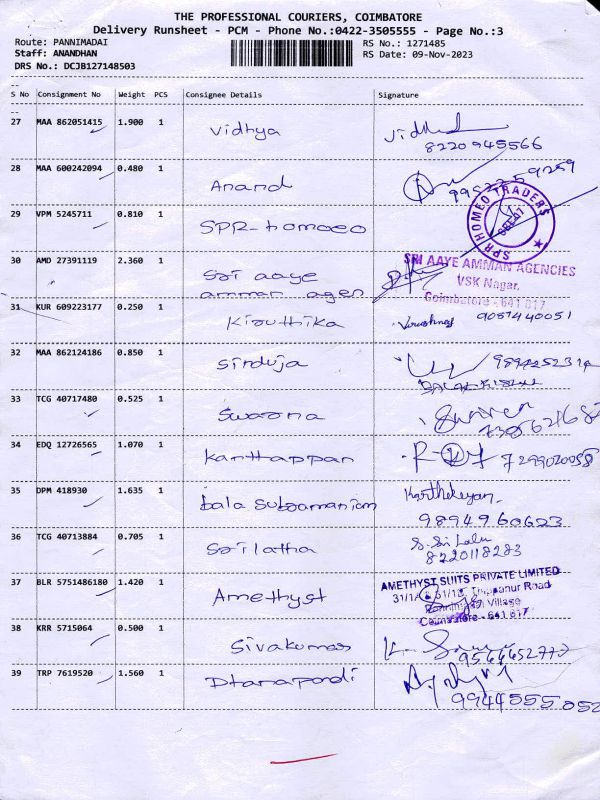 THE PROFESSIONAL COURIERS, COIMBATORE
Delivery Runsheet - PCM - Phone No.:0422-3505555 - Page No.:3
Route: PANNIMADAI
RS No.: 1271485
Staff: ANANDHAN
RS Date: 09-Nov-2023
DRS No.: DCJB127148503
S No Consignment No Weight PCS Consignee Details Signature
27 MAA 862051415 1.900 1 Vidhya
8220945566
28 MAA 600242094 0.480 1 Anand
29 VPM 5245711 0.810 1 SPR-homoeo
SPR HOMEO TRADERS
30 AMD 27391119 2.360 1 Sri aaye
amman agen
SRI AAYE AMMAN AGENCIES
VSK Nagar,
Coimbatore - 641 017
31 KUR 609223177 0.250 1 Kiruthika
32 MAA 862124186 0.850 1 Sinduja
33 TCG 40717480 0.525 1 Swarna
34 EDQ 12726565 1.070 1 Kanthappan 7299020058
35 DPM 418930 1.635 1 bala Subramaniam
9894960623
36 TCG 40713884 0.705 1 Srilatha
8220118283
37 BLR 5751486180 1.420 1 Amethyst
AMETHYST SUITS PRIVATE LIMITED
Road
Village
Coimbatore - 641 017
38 KRR 5715064 0.500 1 Sivakumar
9566652773
39 TRP 7619520 1.560 1 Dhanapandi
9944555052